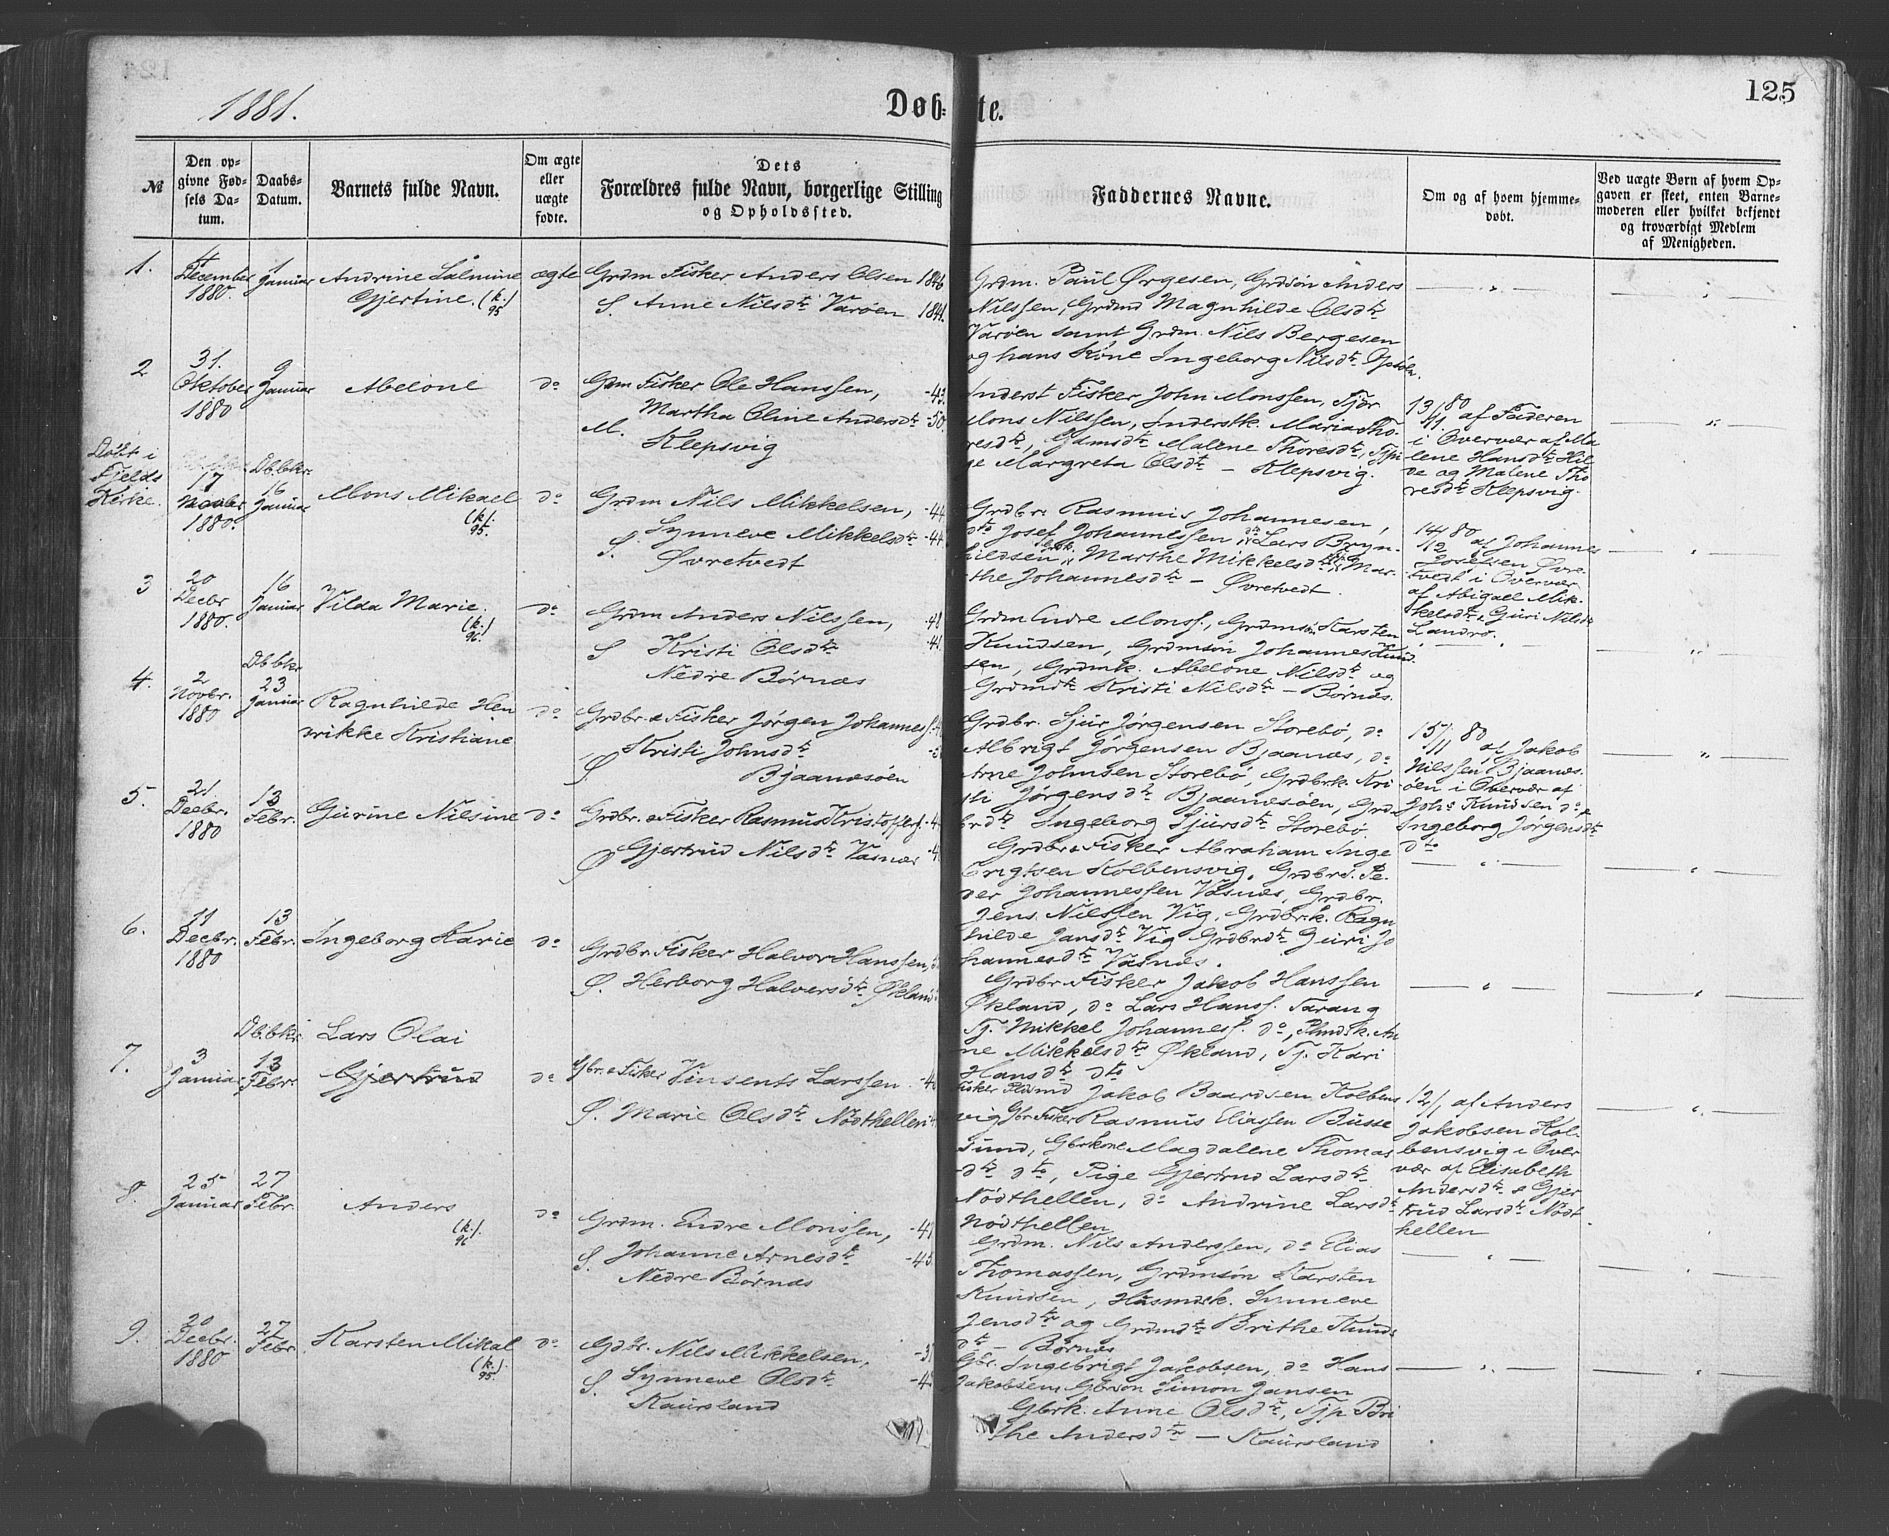 1881.
Døb-
te.
125
№
Den op-
givne Fød-
sels Da-
tum.
Daabs-
Datum.
Barnets fulde Navn.
Om ægte
eller
uægte
fødte.
Dets
Forældres fulde Navn, borgerlige Stilling
og Opholdssted.
Faddernes Navne.
Om og af hvem hjemme-
døbt.
Ved uægte Børn af hvem Op-
gaven er skeet, enten Barne-
moderen eller hvilket bekjendt
og troværdigt Medlem
af Menigheden.
1.
December
1880.
1
Januar
Andrine Salmine
Gjertine. (k.)
95
ægte
Grdm Fisker Anders Olsen 1846
S. Anne Nilsdtr Varøen 1841.
Grdm. Paul Ørgesen, Grdsøn Anders
Nilssen, Magnhilde Olsdtr
Varøen samt Grdm. Nils Bergesen
og hans Kone Ingeborg Nilsdtr
2
31.
Oktober
1880
9
Januar
Abelone
do
Grdm Fisker Ole Hanssen, -43.
Martha Oline Andersdtr -50.
M. Klepsvig
Inderst Fisker John Monssen, Tjdr
Mons Nilssen, Inderstk. Maria Tho-
resdtr, Malene Thoresdtr, Tjpi
ge Margreta Olsdtr - Klepsvig.
13/11 80 af Faderen
i Overvær af Ma
lene Hansdtr Hil
de og Malene Tho
resdtr Klepsvig.
Døbt i
Fjelds
Kirke.
17
Novbr
1880.
Db.bkr.
16
Januar
Mons Mikael
(k).
95.
do
Grdm Nils Mikkelsen, -44
Synneve Mikkelsdtr -44
S. Øvretvedt
Grdbr. Rasmus Johannesen,
do Josef Johannessen do Lars Bryn-
hildsen, Marthe Mikkelsdtr Mar-
the Johannesdtr - Øvretvedt.
14/12 80 af Johannes
Josefsen Øvre-
tvedt i Overvær
af Abigael Mik-
kelsdtr & Guri Nilsdtr
Landro.
3
20
Decbr
1880.
16
Januar
Vilda Marie.
(k.)
96.
do
Grdm Anders Nilssen, -48
S Kristi Olsdtr -41
Nedre Børnæs
Grdm Endre Monss., Grdmsøn Karsten
Knudsen, Grdmsøn Johannes Knud
sen, Grdmk. Abelone Nilsdtr og
Grdmdtr Kristi Nilsdtr - Børnæs.
4.
2
Novbr.
1880
Db.bkr
23
Januar
Ragnhilde Hen
rikke Kristiane
do
Grdbr. & Fisker Jørgen Johanness.
Kristi Johnsdtr
S. Bjaanæsøen
Grdbr. Sjur Jørgensen Storebø, do
Albrigt Jørgensen Bjaanæs, do
Arne Johnsen Storebø, Grdbrk. Kri
sti Jørgensdtr Bjaanesøen, Grd
brdtr Ingeborg Sjursdtr Storebø.
15/11 80 af Jakob
Nilssen Bjaanæs-
øen i Overvær af
Johs Knudsen do &
Ingeborg Jørgensdtr
do
5.
21.
Decbr.
1880
13
Febr.
Gurine Nilsine
do
Grdbr. & Fisker Rasmus Kristoffers.
S Gjertrud Nilsdtr Vasnæs
Grdbr & Fisker Abraham Inge
brigtsen Kolbensvig, Grdbrs. Pe-
der Johannessen Vasnæs, Grdbr.
Jens Nilssen Vig, Grdbrk. Ragn
hilde Jansdtr Vig, Grdbrdtr Guri Jo
hannesdtr Vasnæs.
6.
11
Decbr.
1880
13
Febr.
Ingeborg Karie
do
Grdbr. Fisker Halvor Hanssen,
S. Herborg Halversdtr Økland
Grdbr Fisker Jakob Hanssen
Økland, do Lars Hanss. Tarang
Tj. Mikkel Johanness. do, Plmdsk. An
ne Mikkelsdtr Økland, Tj. Kari
Hansdtr do
7.
3
Januar
Db.bkr
13
Febr.
Lars Olai
Gjertrud
do
Gbr. & Fisker Vinsents Larssen
S. Marie Olsdtr Nødthellen
Fisker Jakob Baardsen Kolbens
vig Gbr. Fisker Rasmus Eliassen Busse
sund, Gbrkone Magdalene Thomas
dtr do, Pige Gjertrud Larsdtr
Nødthellen, do Andrine Larsdtr
Nødthellen
12/1 af Anders
Jakobsen Kol-
bensvig i Over
vær af Elisabeth
Andersdtr & Gjer
trud Larsdtr Nødt
hellen
8.
25
Januar
27
Febr.
Anders
(k.)
96
do
Grdm. Endre Monssen,
S. Johanne Arnesdtr -45.
Nedre Børnæs
Grdm. Nils Anderssen, do Elias
Thomassen, Grdmsøn Karsten
Knudsen, Husmdsk. Synneve
Jensdtr og Grdmdtr Brithe Knuds
dtr - Børnæs
9.
20
Decbr.
1880
27
Febr.
Karsten Mikal
(k).
95.
do
Gdbr. Nils Mikkelsen,
S. Synneve Olsdtr
Kaursland
Gbr. Ingebrigt Jakobsen, do Hans
Jakobsen, Gbrsøn Simon Jansen
Gbrk. Anne Olsdtr, Tjp Bri
the Andersdtr - Kaursland